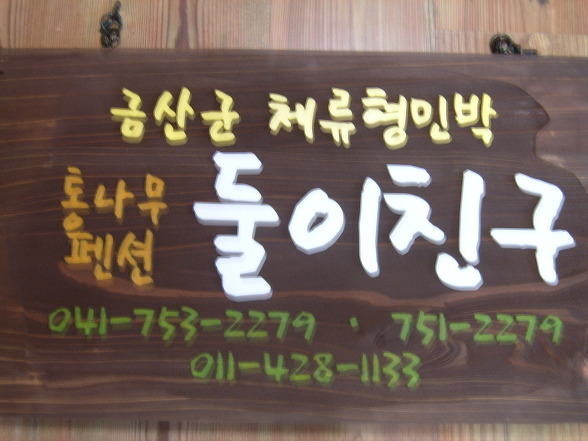 금산군 체류형민박
통나무 펜션 둘이친구
041-753-2279 · 751-2279
011-428-1133